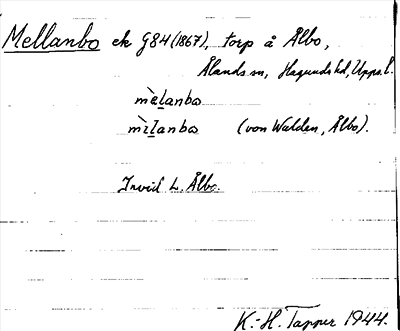 Mellanbo ek G84 (1867), torp å Ålbo,
Ålands sn, Hagunda hd, Upps. l.
mèḻanbo
mìḻanbo (von Walden, Ålbo).
Invid L. Ålbo.
K.-H. Tapper 1944.